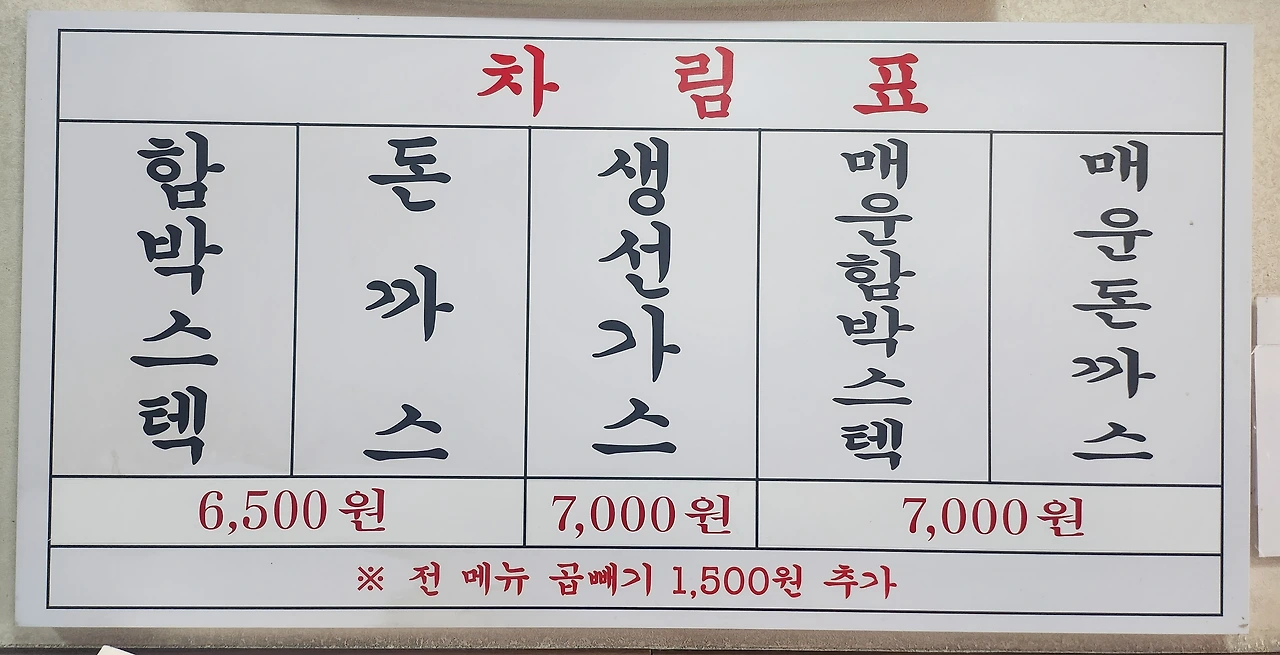 차림표
함박스텍
돈까스
생선가스
매운함박스텍
매운돈까스
6,500원
7,000원
7,000원
※ 전 메뉴 곱빼기 1,500원 추가